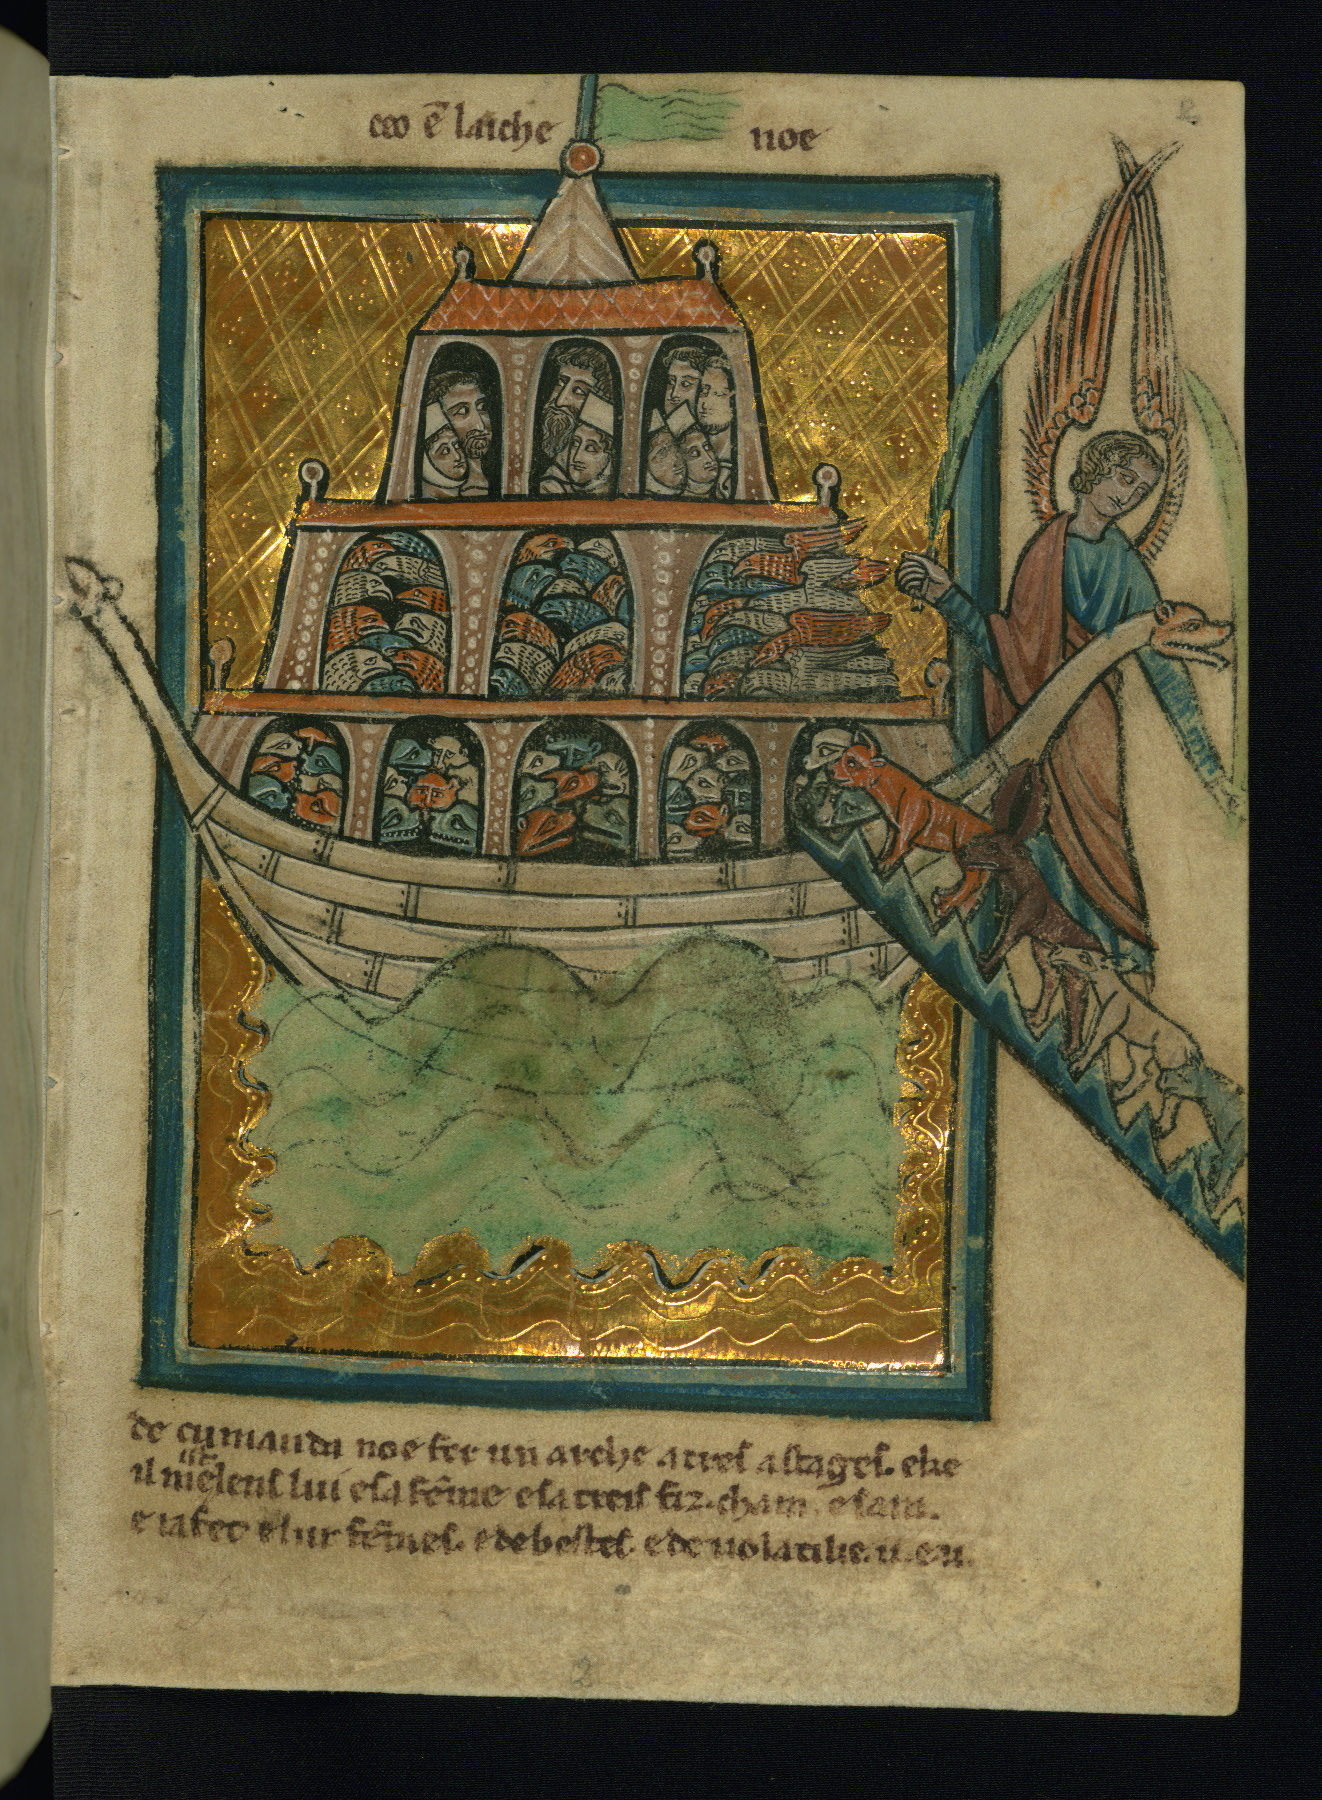 ceo ē larche noe
2
de cumanda noe fer un arche . a treſ aſtageſ . eke
il miſt enſ lui e ſa fēme e ſa treiſ fiz . cham . e ſam .
e iafet e lur fēmeſ . e de beſteſ . e de uolatilie . u . e . u .
2